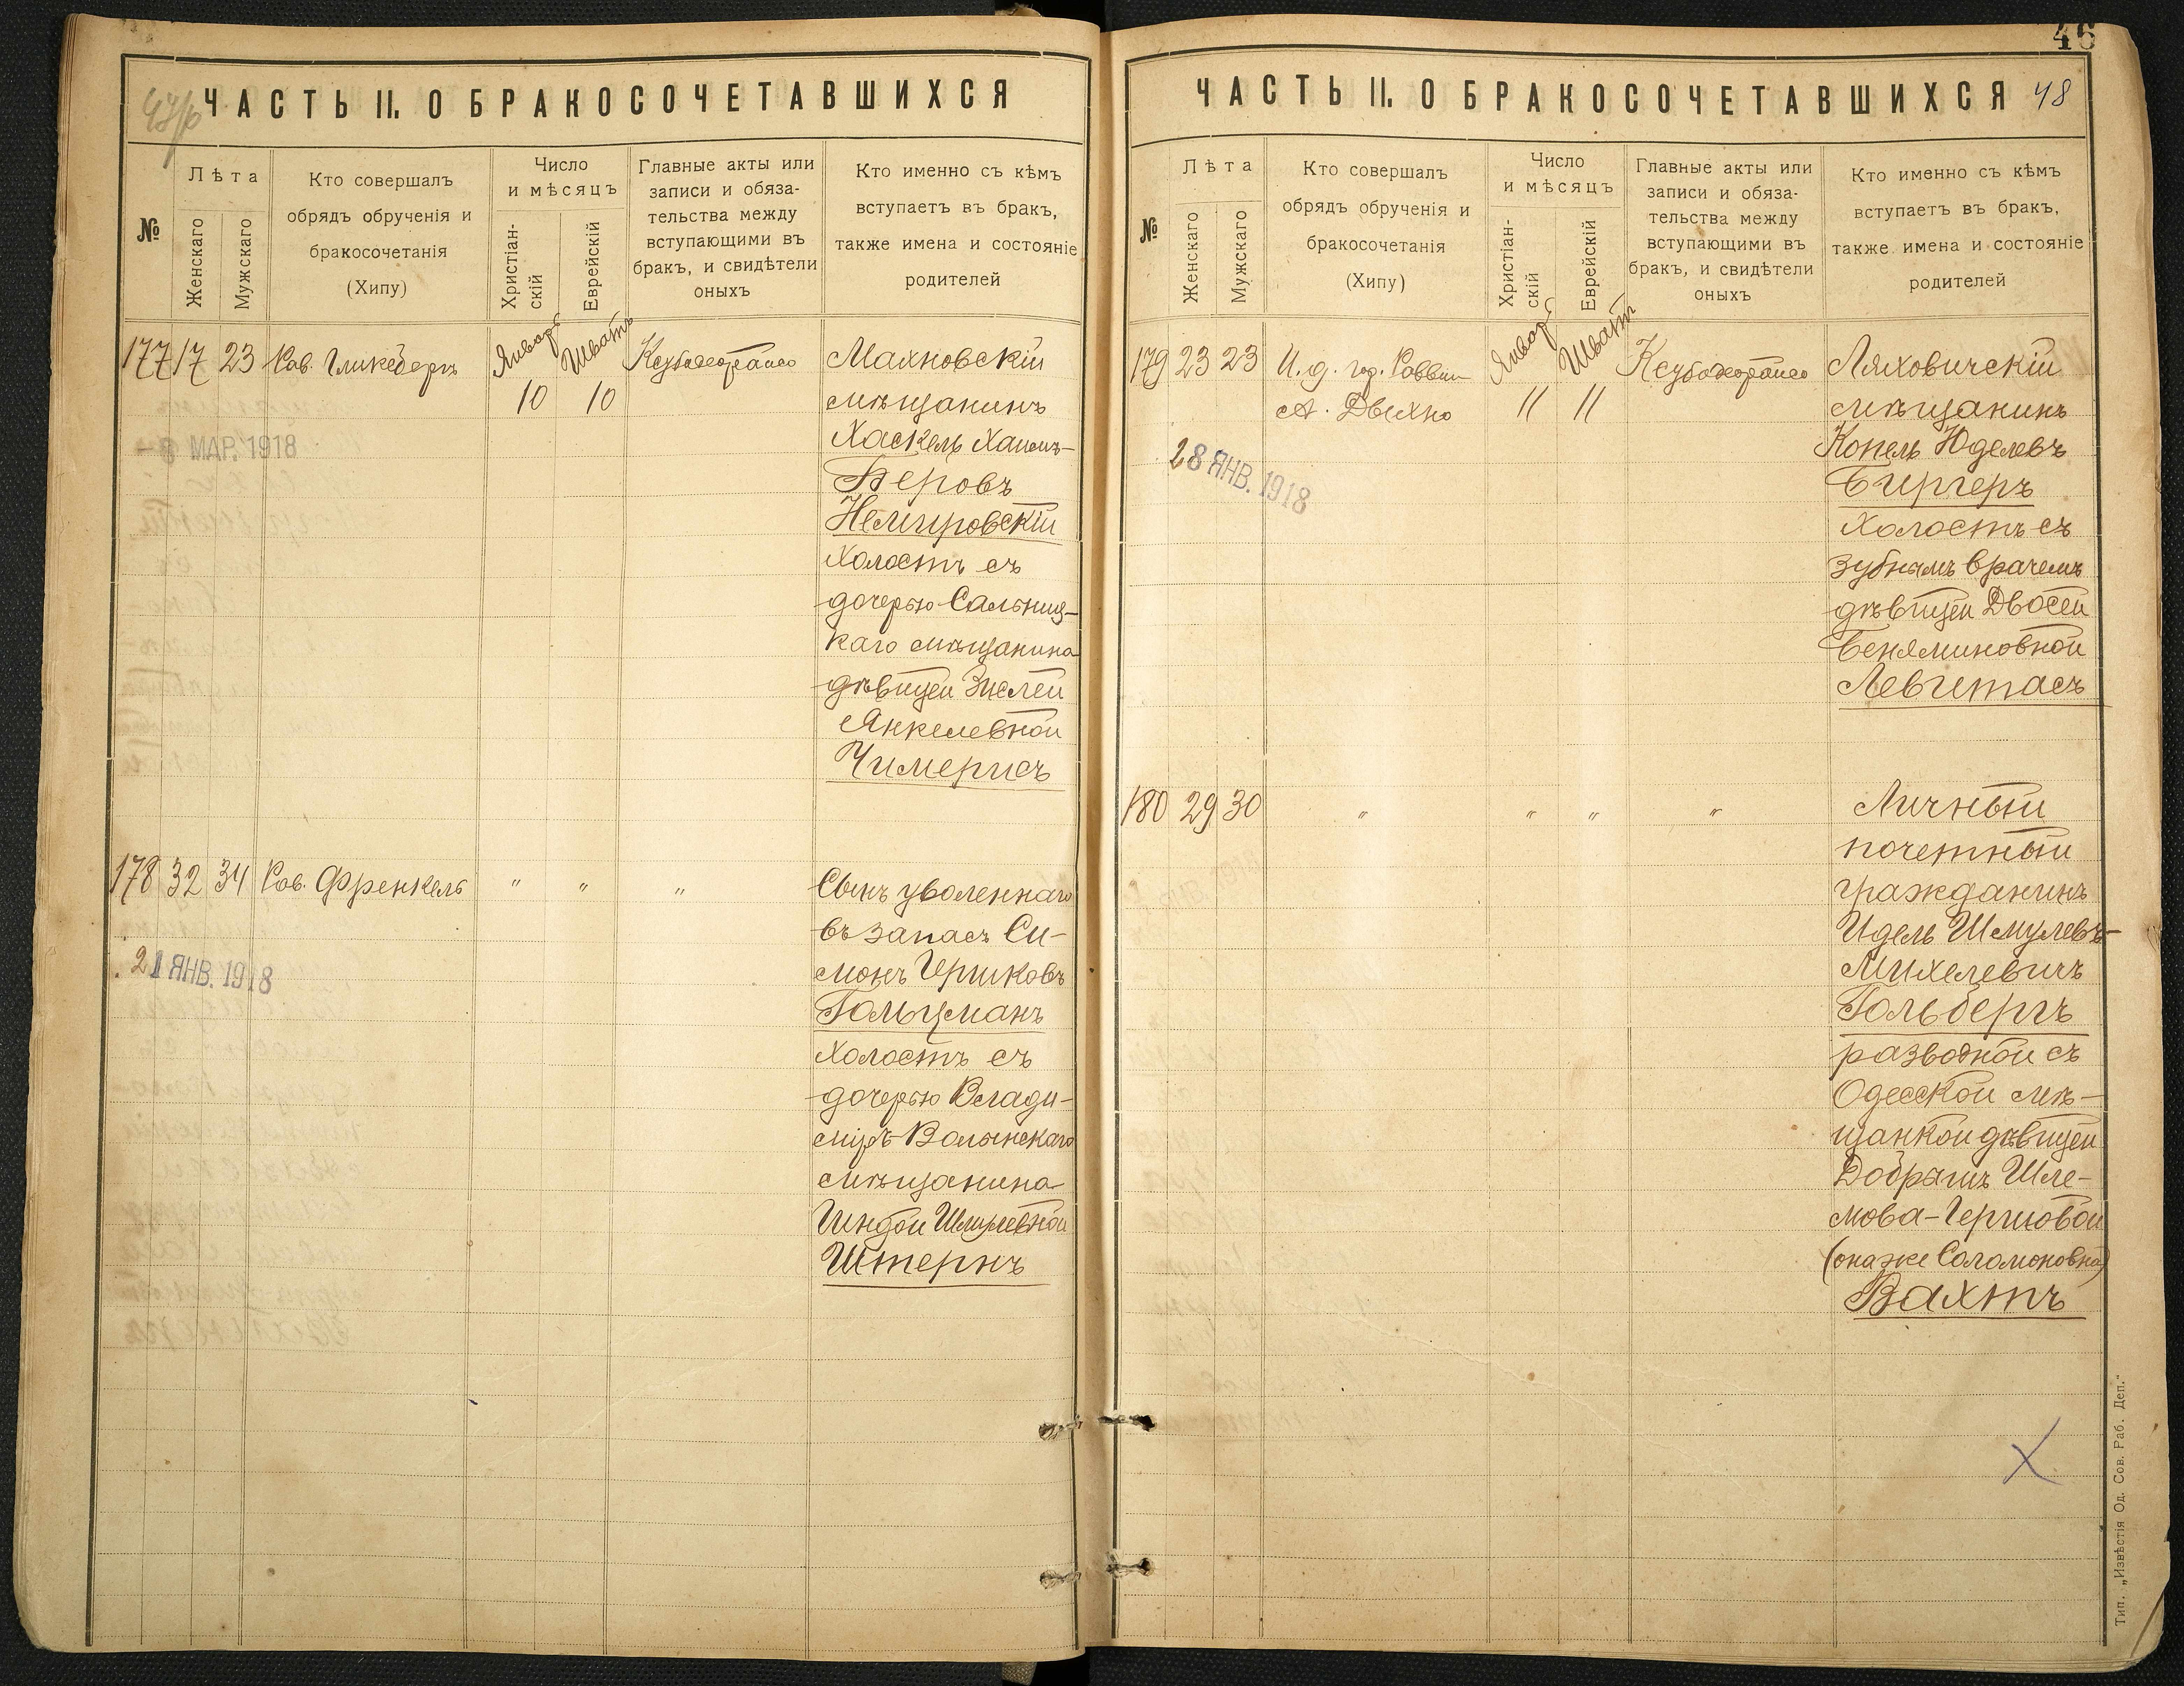 ЧАСТЬ II. О БРАКОСОЧЕТАВШИХСЯ
№
Лѣта
Женскаго
Мужскаго
Кто совершалъ
обрядъ обрученія и
бракосочетанія
(Хипу)
Число
и мѣсяцъ
Христіан-
скій
Еврейскій
Главные акты или
записи и обяза-
тельства между
вступающими въ
бракъ, и свидѣтели
оныхъ
Кто именно съ кѣмъ
вступаетъ въ бракъ,
также имена и состояніе
родителей
177 17 23 Рав. Гликсбергъ
Январь Шватъ
10 10
Махновскій
мѣщанинъ
Хаскель Хаимъ-
Беровъ
Немировскій
холостъ съ
дочерью Сальниц-
каго мѣщанина
дѣвицей Энелей
Янкелевной
Чимерисъ
МАР. 1918
178 32 34 Рав. Френкель " " "
Сынъ уволеннаго
въ запасъ Си-
монъ Гершковъ
Гольцманъ
холостъ съ
дочерью Влади-
міръ-Волынскаго
мѣщанина
Гиндой Шмулевной
Штернъ
21 ЯНВ. 1918
46
ЧАСТЬ II. О БРАКОСОЧЕТАВШИХСЯ 48
№
Лѣта
Женскаго
Мужскаго
Кто совершалъ
обрядъ обрученія и
бракосочетанія
(Хипу)
Число
и мѣсяцъ
Христіан-
скій
Еврейскій
Главные акты или
записи и обяза-
тельства между
вступающими въ
бракъ, и свидѣтели
оныхъ
Кто именно съ кѣмъ
вступаетъ въ бракъ,
также имена и состояніе
родителей
179 23 23 И. д. гор. Раввин
А. Двихно
Январь Шват
11 11
Ляховичскій
мѣщанинъ
Копель Юделевъ
Биргеръ
холостъ съ
зубнымъ врачемъ
дѣвицей Двосей
Беняминовной
Левитасъ
28 ЯНВ. 1918
180 29 30 " " " "
Личный
почетный
гражданинъ
Идель Шмулевъ-
Михелевичъ
Гольбергъ
разводной съ
Одесской мѣ-
щанкой дѣвицей
Добрышъ Шле-
мова-Гершовой
(она же Соломоновна)
Вахтъ
Тип. „Извѣстія Од. Сов. Раб. Деп."